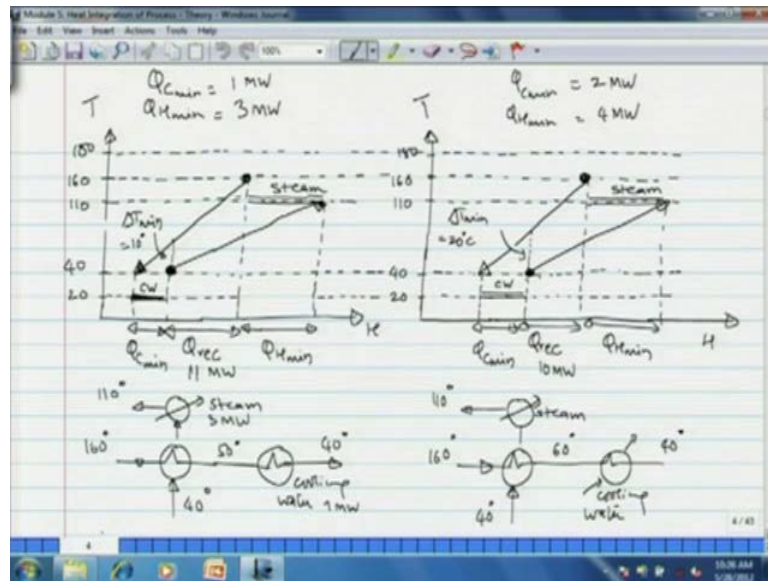 Module 5. Heat Integration of Process - Theory - Windows Journal
File Edit View Insert Actions Tools Help
100%
QCmin = 1 MW
QHmin = 3 MW
T
180
160
110
40
20
steam
ΔTmin
=10°
CW
H
QCmin
Qrec
11 MW
QHmin
110°
steam
3 MW
160°
50°
40°
40°
cooling
water 1 MW
QCmin = 2 MW
QHmin = 4 MW
T
180
160
110
40
20
steam
ΔTmin
=20°C
CW
H
QCmin
Qrec
10 MW
QHmin
110°
steam
160°
60°
40°
40°
cooling
water
4 / 43
4
10:26 AM